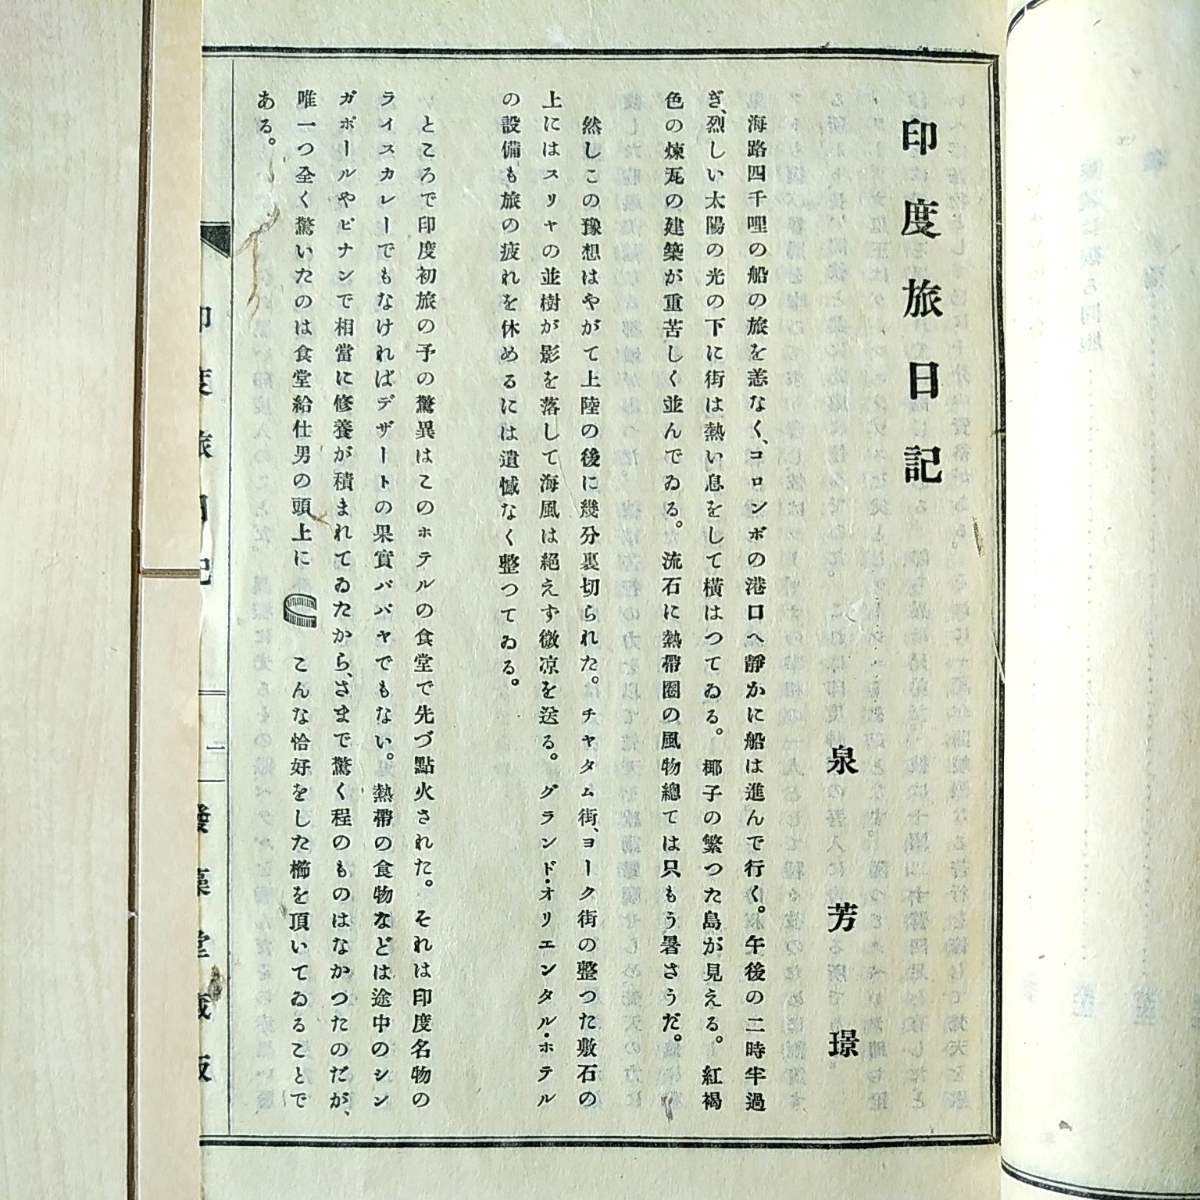 印度旅日記
泉芳璟
海路四千哩の船の旅を恙なく、コロンボの港口へ靜かに船は進んで行く。午後の二時半過
ぎ、烈しい太陽の光の下に街は熱い息をして横はつてゐる。椰子の繁つた島が見える。紅褐
色の煉瓦の建築が重苦しく並んでゐる。流石に熱帶圈の風物總ては只もう暑さうだ。
然しこの豫想はやがて上陸の後に幾分裏切られた。チヤタム街、ヨーク街の整つた敷石の
上にはスリヤの並樹が影を落して海風は絕えず微凉を送る。グランド・オリエンタル・ホテル
の設備も旅の疲れを休めるには遺憾なく整つてゐる。
ところで印度初旅の予の驚異はこのホテルの食堂で先づ點火された。それは印度名物の
ライスカレーでもなければデザートの果實パパヤでもない。熱帶の食物などは途中のシン
ガポールやピナンで相當に修養が積まれてゐたから、さまで驚く程のものはなかつたのだが、
唯一つ全く驚いたのは食堂給仕男の頭上に こんな恰好をした櫛を頂いてゐることで
ある。
印度旅日記
一
發藻堂藏版